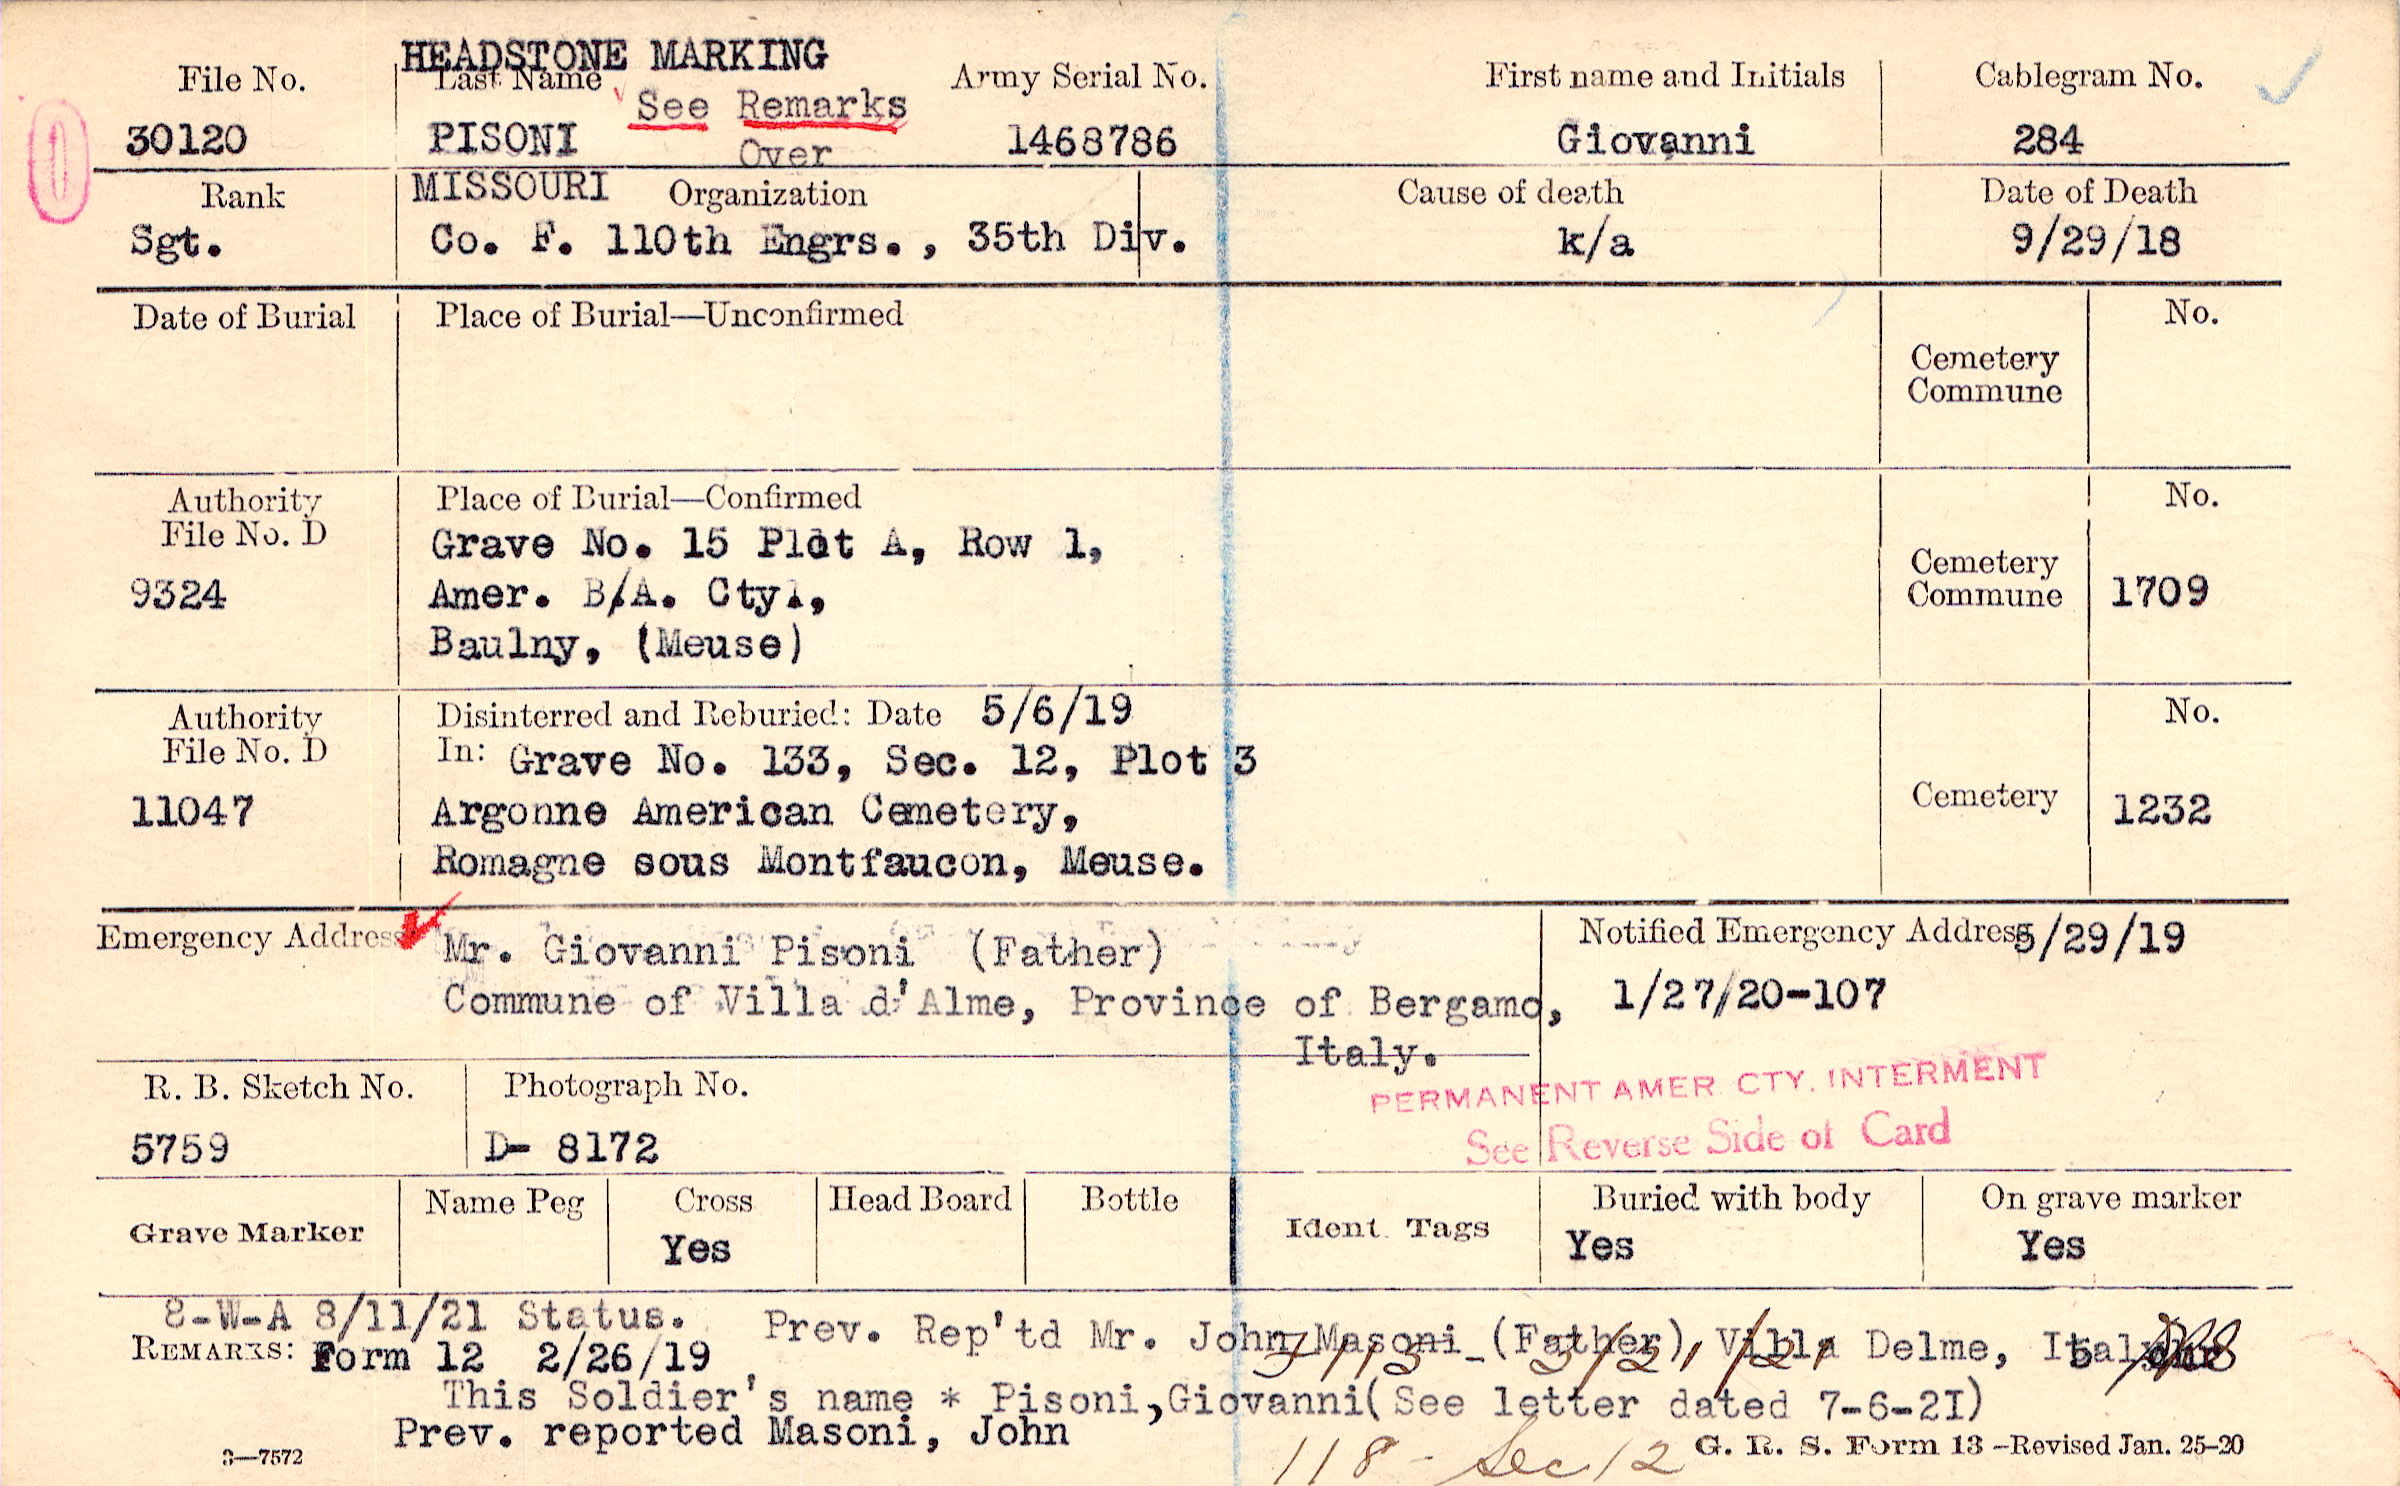 HEADSTONE MARKING
File No. Last Name Army Serial No. First name and Initials Cablegram No.
See Remarks
30120 PISONI Over 1468786 Giovanni 284
Rank MISSOURI Organization Cause of death Date of Death
Sgt. Co. F. 110th Engrs., 35th Div. k/a 9/29/18
Date of Burial Place of Burial—Unconfirmed No.
Cemetery
Commune
Authority Place of Burial—Confirmed No.
File No. D Grave No. 15 Plot A, Row 1, Cemetery
9324 Amer. B/A. Cty., Commune 1709
Baulny, (Meuse)
Authority Disinterred and Reburied: Date 5/6/19 No.
File No. D In: Grave No. 133, Sec. 12, Plot 3
11047 Argonne American Cemetery, Cemetery 1232
Romagne sous Montfaucon, Meuse.
Emergency Address Mr. Giovanni Pisoni (Father) Notified Emergency Address 5/29/19
Commune of Villa d'Alme, Province of Bergamo, 1/27/20-107
Italy.
PERMANENT AMER. CTY. INTERMENT
See Reverse Side of Card
R. B. Sketch No. Photograph No.
5759 D- 8172
Grave Marker Name Peg Cross Head Board Bottle Ident. Tags Buried with body On grave marker
Yes Yes Yes
8-W-A 8/11/21 Status. Prev. Rep'td Mr. John Masoni (Father), Villa Delme, Italy
REMARKS: Form 12 2/26/19
This Soldier's name * Pisoni,Giovanni(See letter dated 7-6-21)
Prev. reported Masoni, John
3—7572 118 - Sec 12 G. R. S. Form 13 -Revised Jan. 25-20